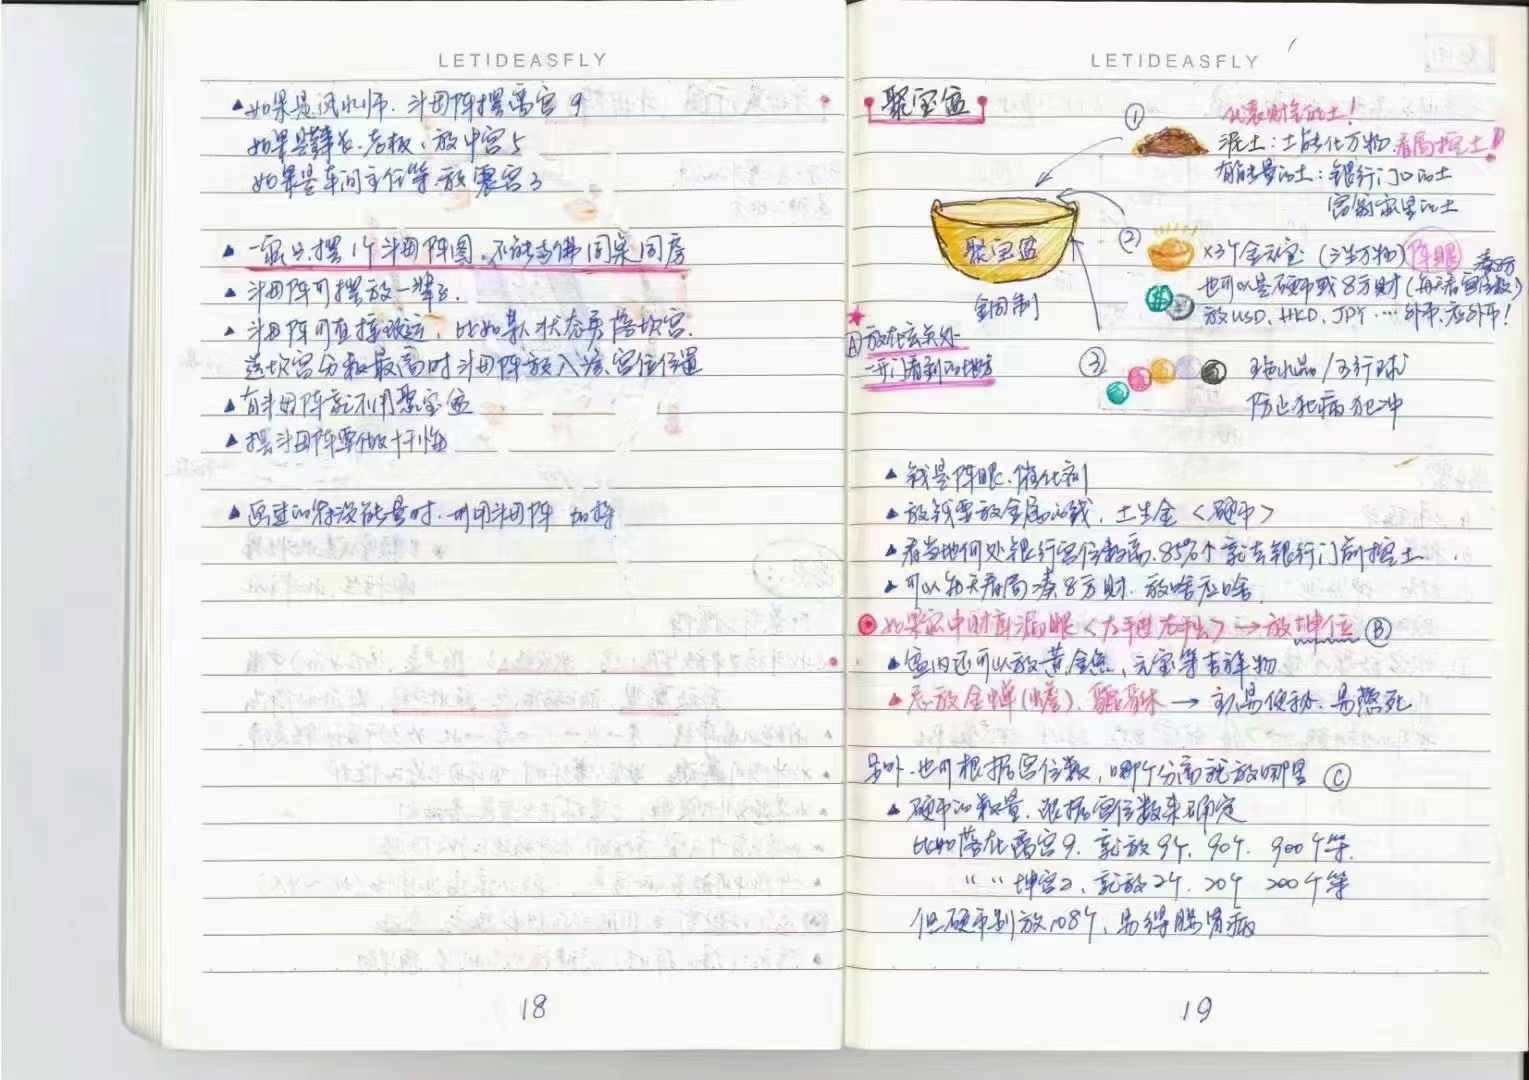 LETIDEASFLY
▲如果是风水师、斗母阵摆离宫9
如果是董事长、老板、放中宫5
如果是车间主任等、放震宫3
▲一家只摆1个斗母阵图、不能与佛同桌同房
▲斗母阵可摆放一辈子.
▲斗母阵可直接改运，比如某人状态男落坎宫.
选坎宫分数最高时斗母阵放入该宫位位置
▲有斗母阵就不用聚宝盆
▲摆斗母阵要做十忏悔
▲画过的符没能量时、可用斗母阵 加持
18
LETIDEASFLY
聚宝盆
①
代表财富的土！
泥土：土能化万物 看局挖土！
有能量的土：银行门口的土
富翁家里的土
聚宝盆
全铜制
②
×3个金元宝（三生万物）阵眼
也可以是硬币或8方财（每天看宫位数）
放USD、HKD、JPY····外币、应外币！
★
Ⓐ 放在玄关处
一开门看到的地方
③
五色水晶/五行球
防止犯病犯冲
▲钱是阵眼、催化剂
▲放钱要放金属的钱、土生金＜硬币＞
▲看当地何处银行宫位数高、85%↑就去银行门前挖土
▲可以每天看局凑8方财、放啥应啥.
如果家中财库漏眼＜大手进大手出＞→放坤位 Ⓑ
▲盆内还可以放黄金鱼、元宝等吉祥物
▲忌放金蝉(蟾)、貔貅→主易便秘、易憋死
另外、也可根据宫位数，哪个分高就放哪里 Ⓒ
▲硬币的数量、根据宫位数来确定
比如落在离宫9、就放9个、90个、900个等.
〃 〃 坤宫2、就放2个、20个 200个等
但硬币别放108个、易得肠胃病
19